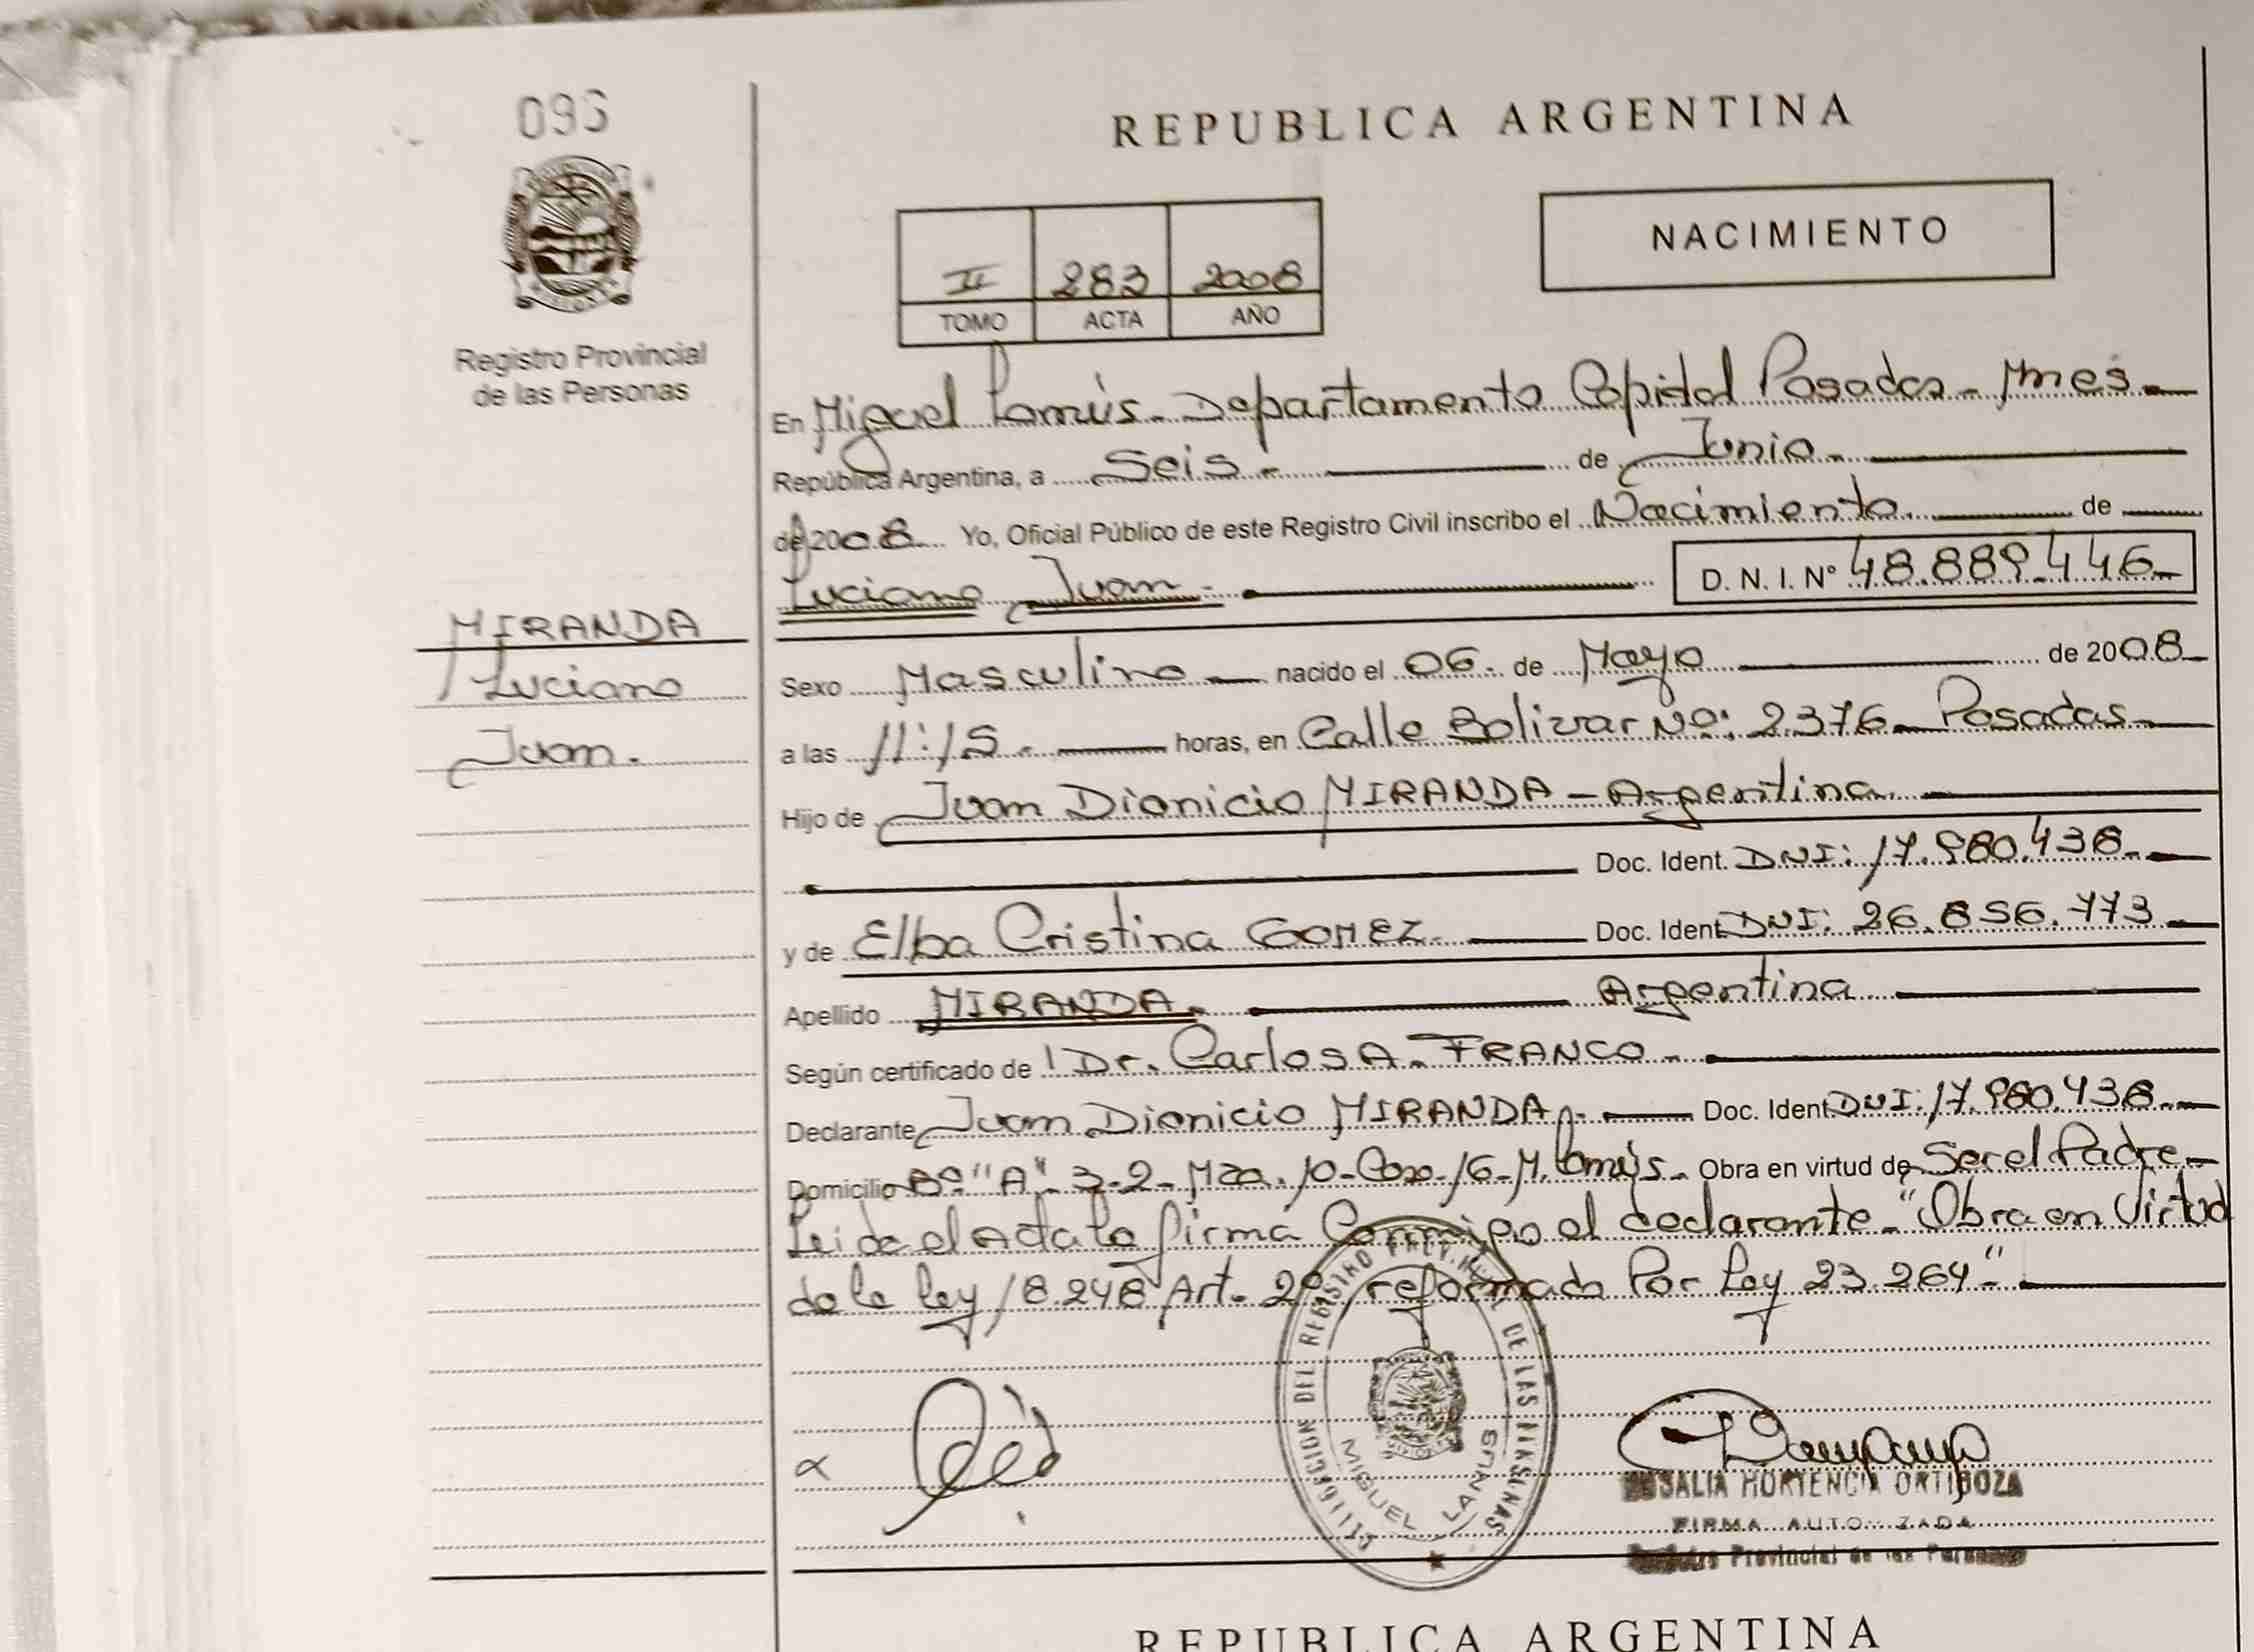 096
REPUBLICA ARGENTINA
NACIMIENTO
II 283 2008
TOMO ACTA AÑO
Registro Provincial
de las Personas
En Miguel Lanús - Departamento Capital Posadas - Mnes -
República Argentina, a Seis - de Junio -
de 2008 Yo, Oficial Público de este Registro Civil inscribo el Nacimiento de
Luciano Juan - D. N. I. N° 48.889.446-
MIRANDA
Luciano
Juan.
Sexo Masculino nacido el 06 - de Mayo de 2008
a las 11:15 - horas, en Calle Bolivar Nº: 2376 - Posadas -
Hijo de Juan Dionicio MIRANDA - Argentina
Doc. Ident. DNI: 17.980.438 -
y de Elba Cristina GOMEZ - Doc. Ident. DNI: 26.856.773 -
Apellido MIRANDA - Argentina
Según certificado de Dr. Carlos A. FRANCO -
Declarante Juan Dionicio MIRANDA - Doc. Ident. DNI: 17.980.438 -
Domicilio Bº "A" 3-2- Mza. 10- Casa-16- M. Lanús - Obra en virtud de Ser el Padre -
Leida el Acta la firma Conmigo el declarante - "Obra en Virtud
de la ley 18.248 Art. 2º, reformada Por Ley 23.264" -
DEL REGISTRO DE LAS PERSONAS
MIGUEL LANUS
ROSALIA HORTENCIA ORTIGOZA
FIRMA AUTORIZADA
Registro Provincial de las Personas
REPUBLICA ARGENTINA